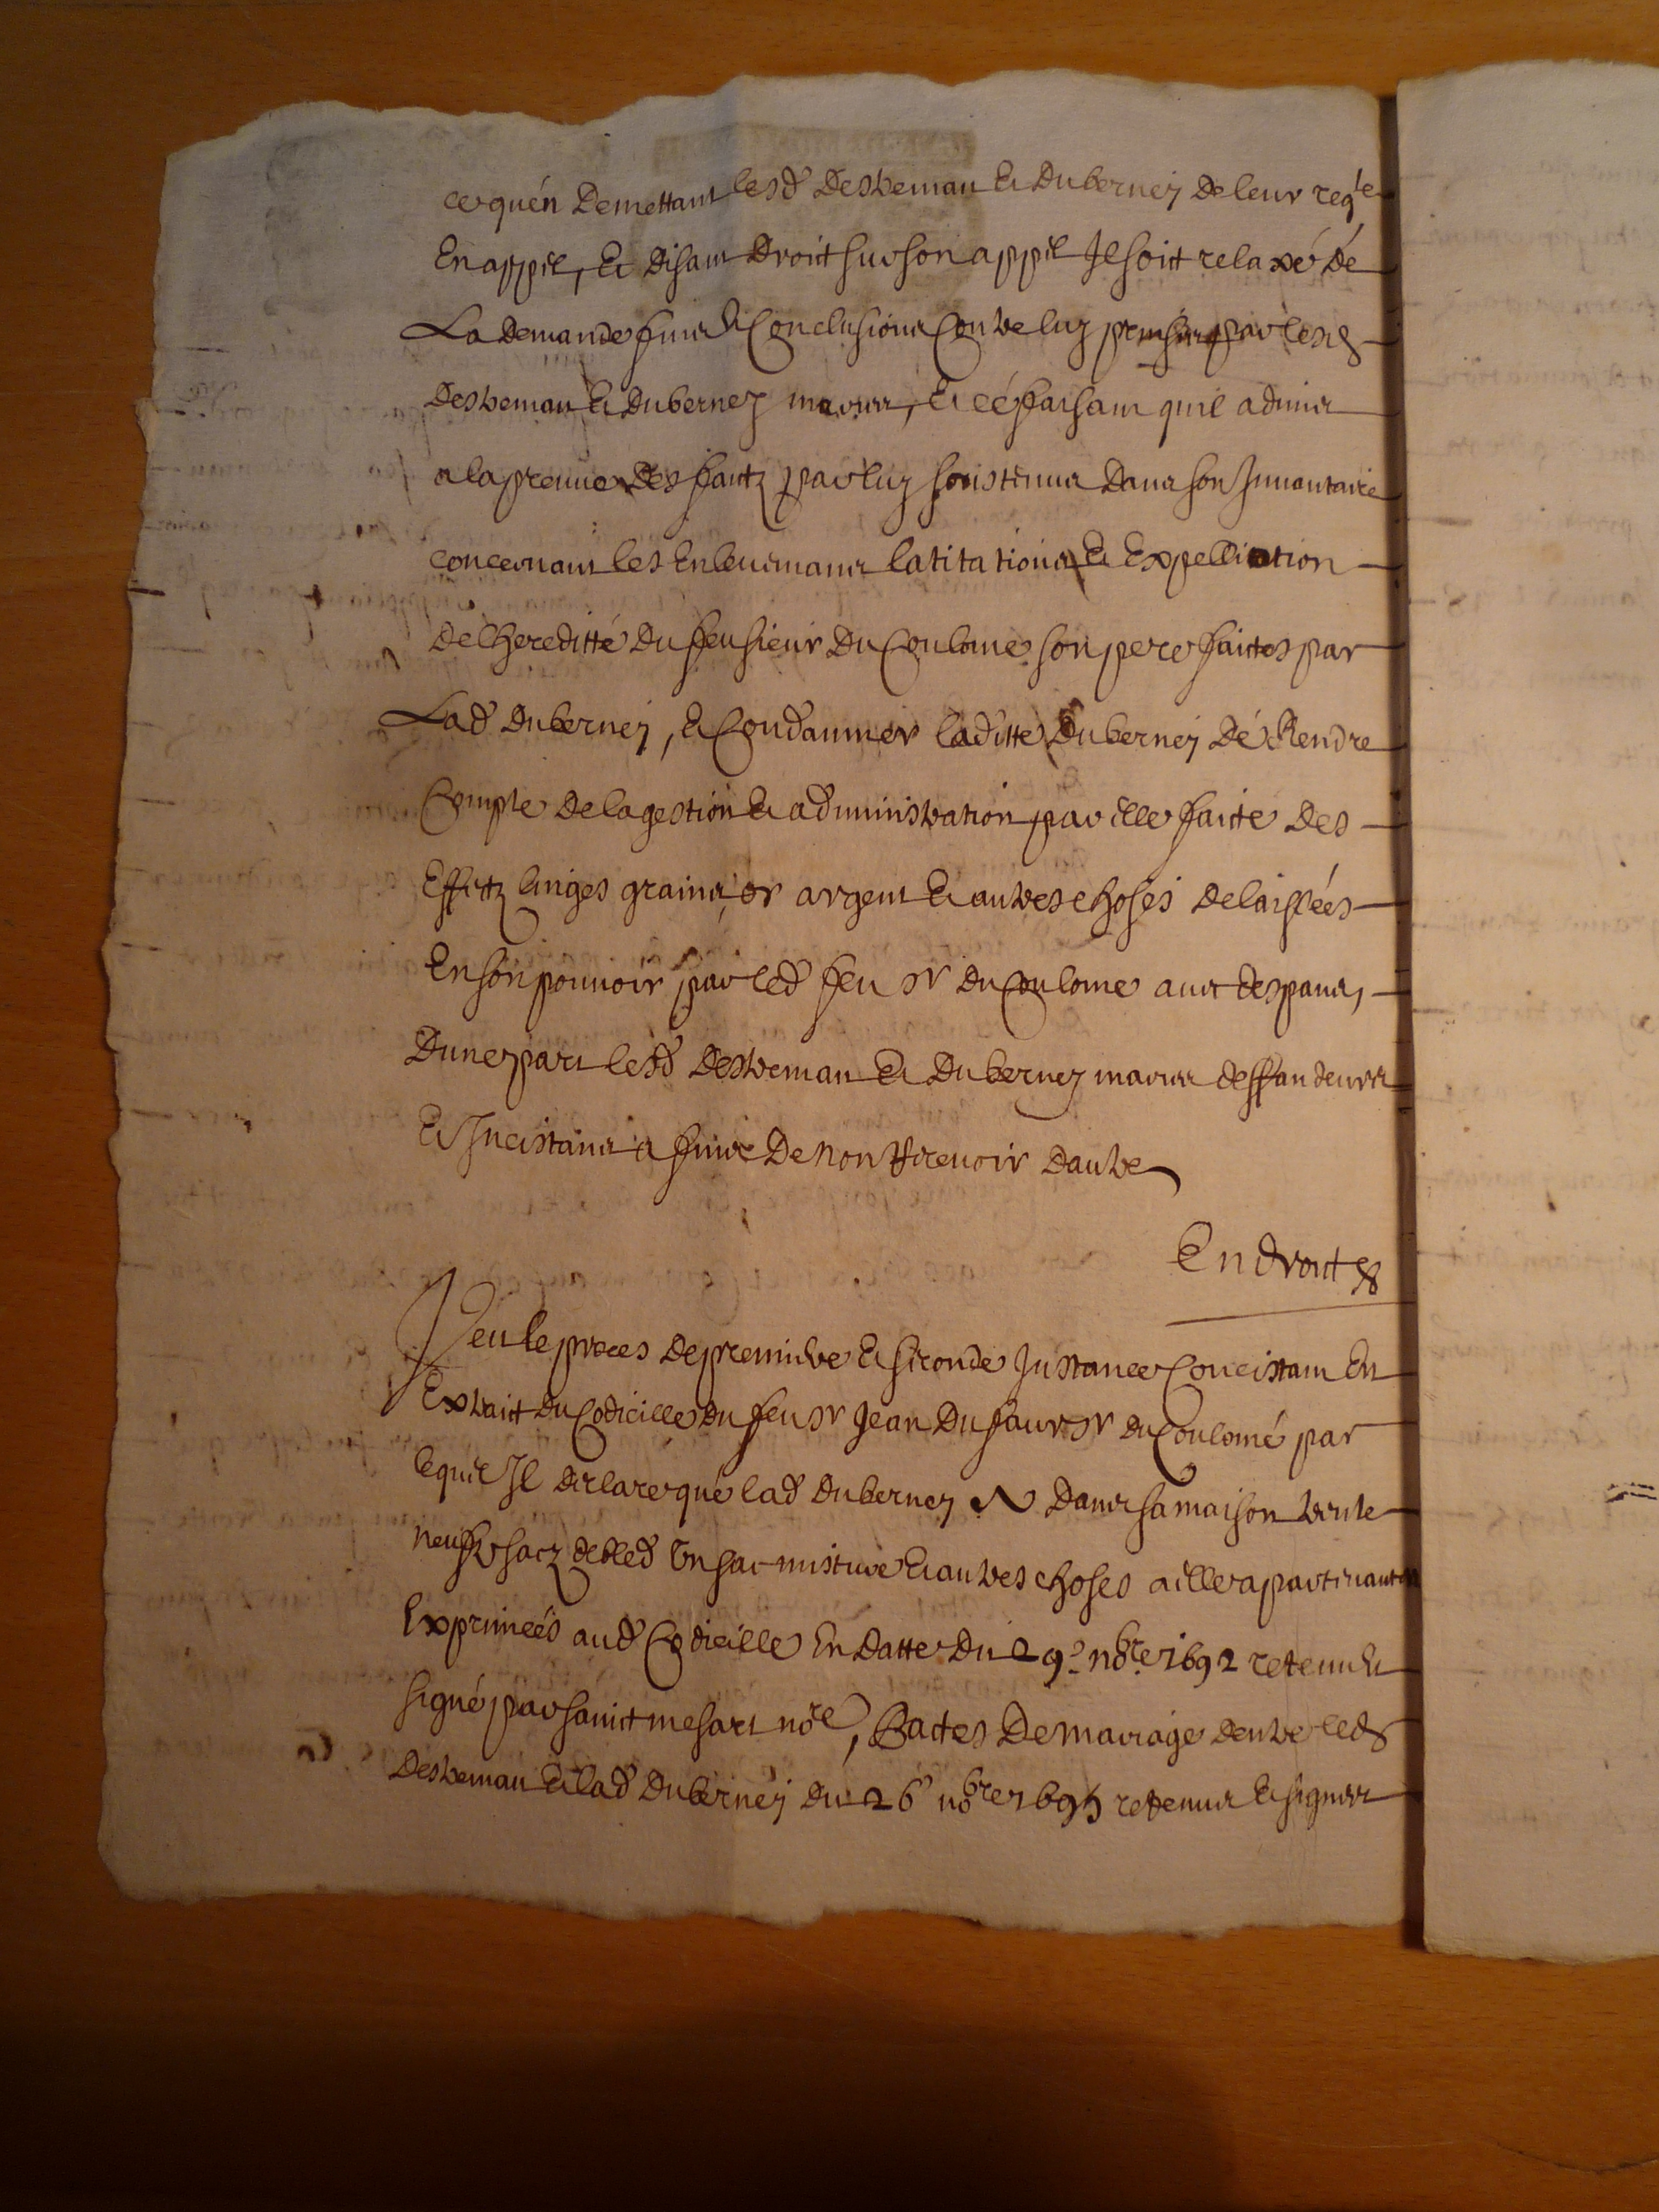 ce quén Demettant lesd Destremau Et Duberney De leur reqte
En appel, Et Disant Droit sur son appel Il soit relaxé dé
La Demande fins Et Conclusions Contre luy prinses par lesd
Destremau Et Duberney mariés, Et cé faisant quil admis
a la preuue Des faitz par luy soustenus Dans son Inuantaire
concernant les Enleuemans latitations Et Expelliation
De lhereditté Du feu sieur Du Coulomé son pere faictes par
Lad Duberney, Et Condamner laditte Duberney Dé Rendre
Compte De la gestion Et administration par elle faicte Des
Effectz linges grains, or argent Et autres choses Delaissées
En son pouuoir par led feu sr Du Coulome auec despans,
Dune part lesd Destremau Et Duberney mariés deffandeurs
Et Incistans a fins De non recevoir Dautre
En droit
Veu le proces De premiere Et seconde Instance Concistant En
Extrait Du Codicille Du feu sr Jean Dufaur sr Du Coulomé par
lequel Il declare qué lad Duberney A Dans sa maison trente
neuf sacz de bled Un sac misture Et autres choses a elle apartenantes
Exprimeés aud Codicille En Datte Du 29e nobre 1692 retenu Et
signé par sainct mesart nore, Pactes De mariage Dentre led
Destremau Et lad Duberney Du 26e nobre 1695 retenus Et signés